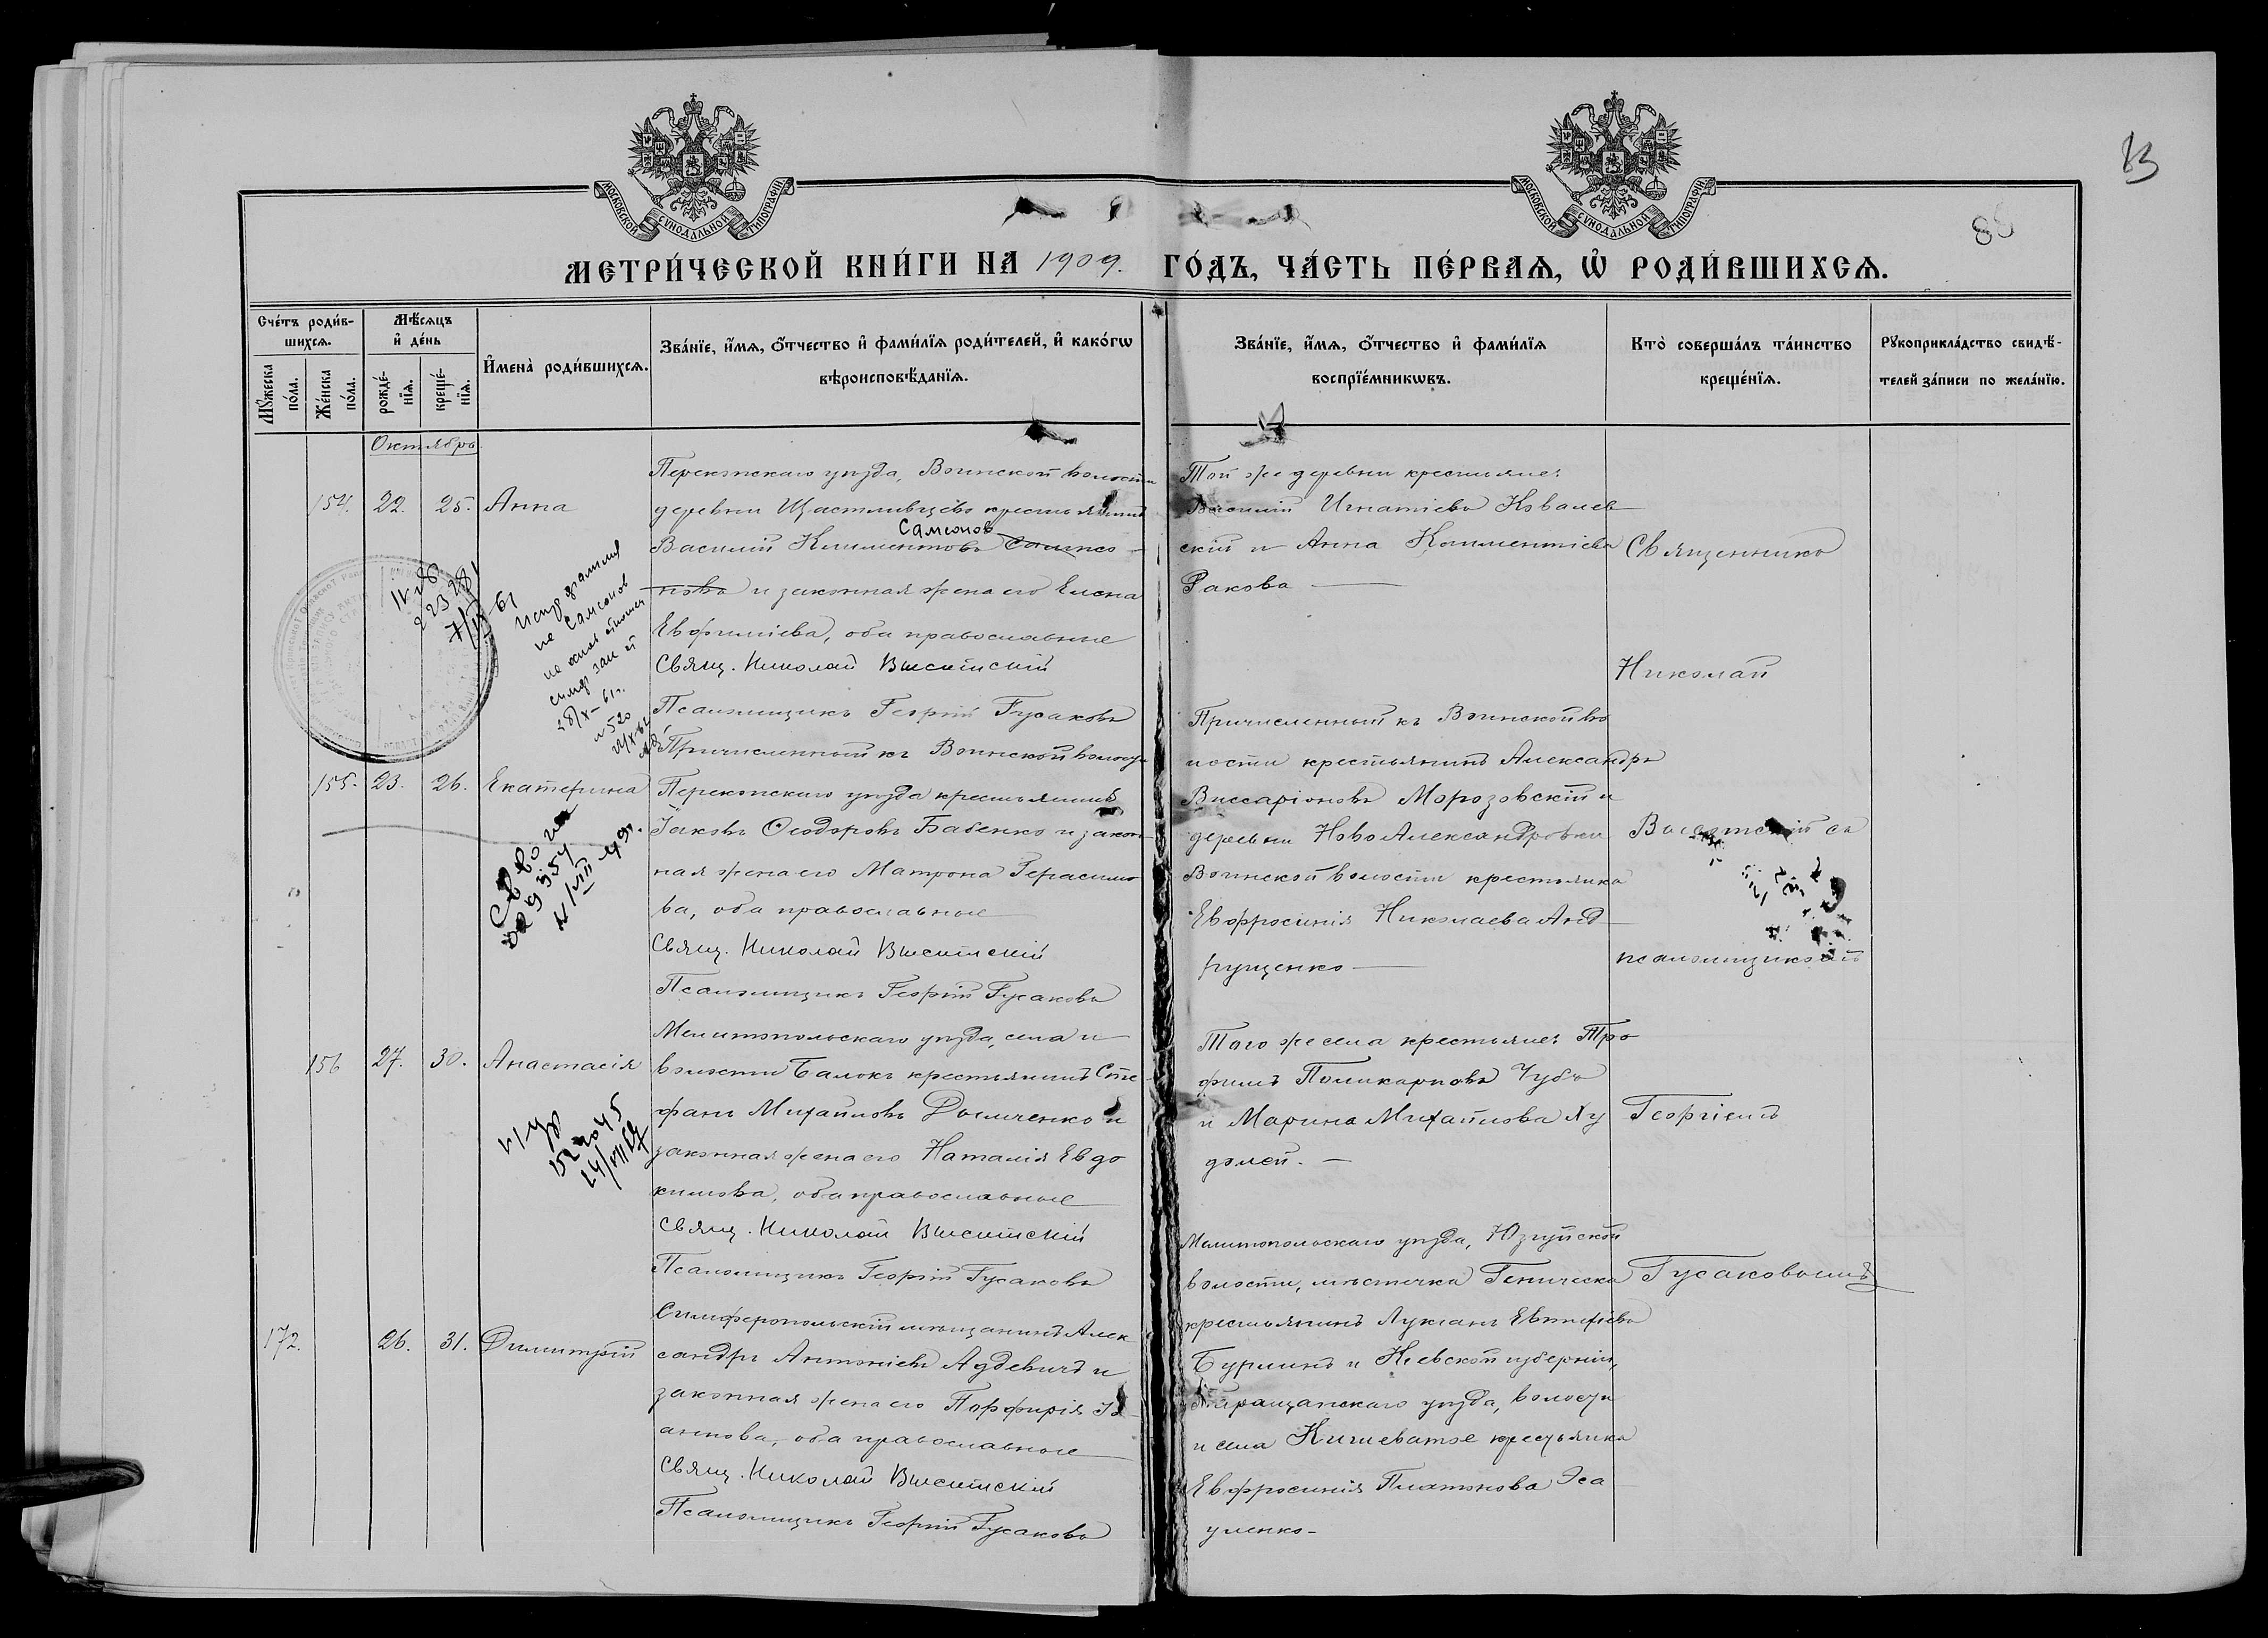 МОСКОВСКОЙ СѴНОДАЛЬНОЙ ТИПОГРАФІИ
МОСКОВСКОЙ СѴНОДАЛЬНОЙ ТИПОГРАФІИ
13
МЕТРИ́ЧЕСКОЙ КНИ́ГИ НА 1909. ГО́ДЪ, ЧА́СТЬ ПЕ́РВАѦ, Ѡ҆ РОДИ́ВШИХСѦ.
Сче́тъ роди́в-
шихсѧ.
Мѣ́сѧцъ
и҆ де́нь
Мꙋ́жеска
по́ла.
Же́нска
по́ла.
рожде́-
нїѧ.
креще́-
нїѧ.
И҆мена̀ роди́вшихсѧ.
Зва́нїе, и҆́мѧ, ѻ҆́тчество и҆ фами́лїѧ роди́телей, и҆ како́гѡ
вѣроисповѣ́данїѧ.
Зва́нїе, и҆́мѧ, ѻ҆́тчество и҆ фами́лїѧ
воспрїе́мникѡвъ.
Кто̀ соверша́лъ та́инство
креще́нїѧ.
Рꙋкоприкла́дство свидѣ́-
телей за́писи по жела́нїю.
Октябрь.
154. 22. 25. Анна
Перекопскаго уѣзда, Воинской волости
деревни Щастливцево крестьянинъ
Самсонов
Василій Климентовъ Сампсо-
новъ и законная жена его Елена
Евфиміева, оба православные
Свящ. Николай Высотскій
Псаломщикъ Георгій Гусаковъ
Той же деревни крестьяне:
Василій Игнатіевъ Ковалев-
скій и Анна Климентіева
Ракова
Исправления
на Самсонов
28/X-61г.
№ 520
155. 23. 26. Екатерина
Причисленный къ Воинской волости
Перекопскаго уѣзда крестьянинъ
Іаковъ Ѳеодоровъ Бабенко и закон-
ная жена его Матрона Герасимо-
ва, оба православные
Свящ. Николай Высотскій
Псаломщикъ Георгій Гусаковъ
Причисленный къ Воинской во
лости крестьянинъ Александръ
Виссаріоновъ Морозовскій и
деревни НовоАлександровки
Воинской волости крестьянка
Евфросинія Николаева Анд-
рущенко
156 27. 30. Анастасія
Мелитопольскаго уѣзда, села и
волости Балокъ крестьянинъ Сте-
фанъ Михайловъ Домченко и
законная жена его Наталія Евдо
кимова, оба православные
Свящ. Николай Высотскій
Псаломщикъ Георгій Гусаковъ
Того же села крестьяне: Тро
фимъ Поликарповъ Чубъ
и Марина Михайлова Ху
долей.
172. 26. 31. Димитрій
Симферопольскій мѣщанинъ Алек
сандръ Антоніевъ Аудевичъ и
законная жена его Порфирія Ів-
аннова, оба православные
Свящ. Николай Высотскій
Псаломщикъ Георгій Гусаковъ
Мелитопольскаго уѣзда, Юзкуйской
волости, мѣстечка Геническа
крестьянинъ Лукіанъ Евтихіевъ
Бурминъ и Кіевской губерніи,
Таращанскаго уѣзда, волости
и села Кишеватое крестьянка
Евфросинія Платонова Эса
уленко
Священникъ
Николай
Высотскій съ
псаломщикомъ
Георгіемъ
Гусаковымъ